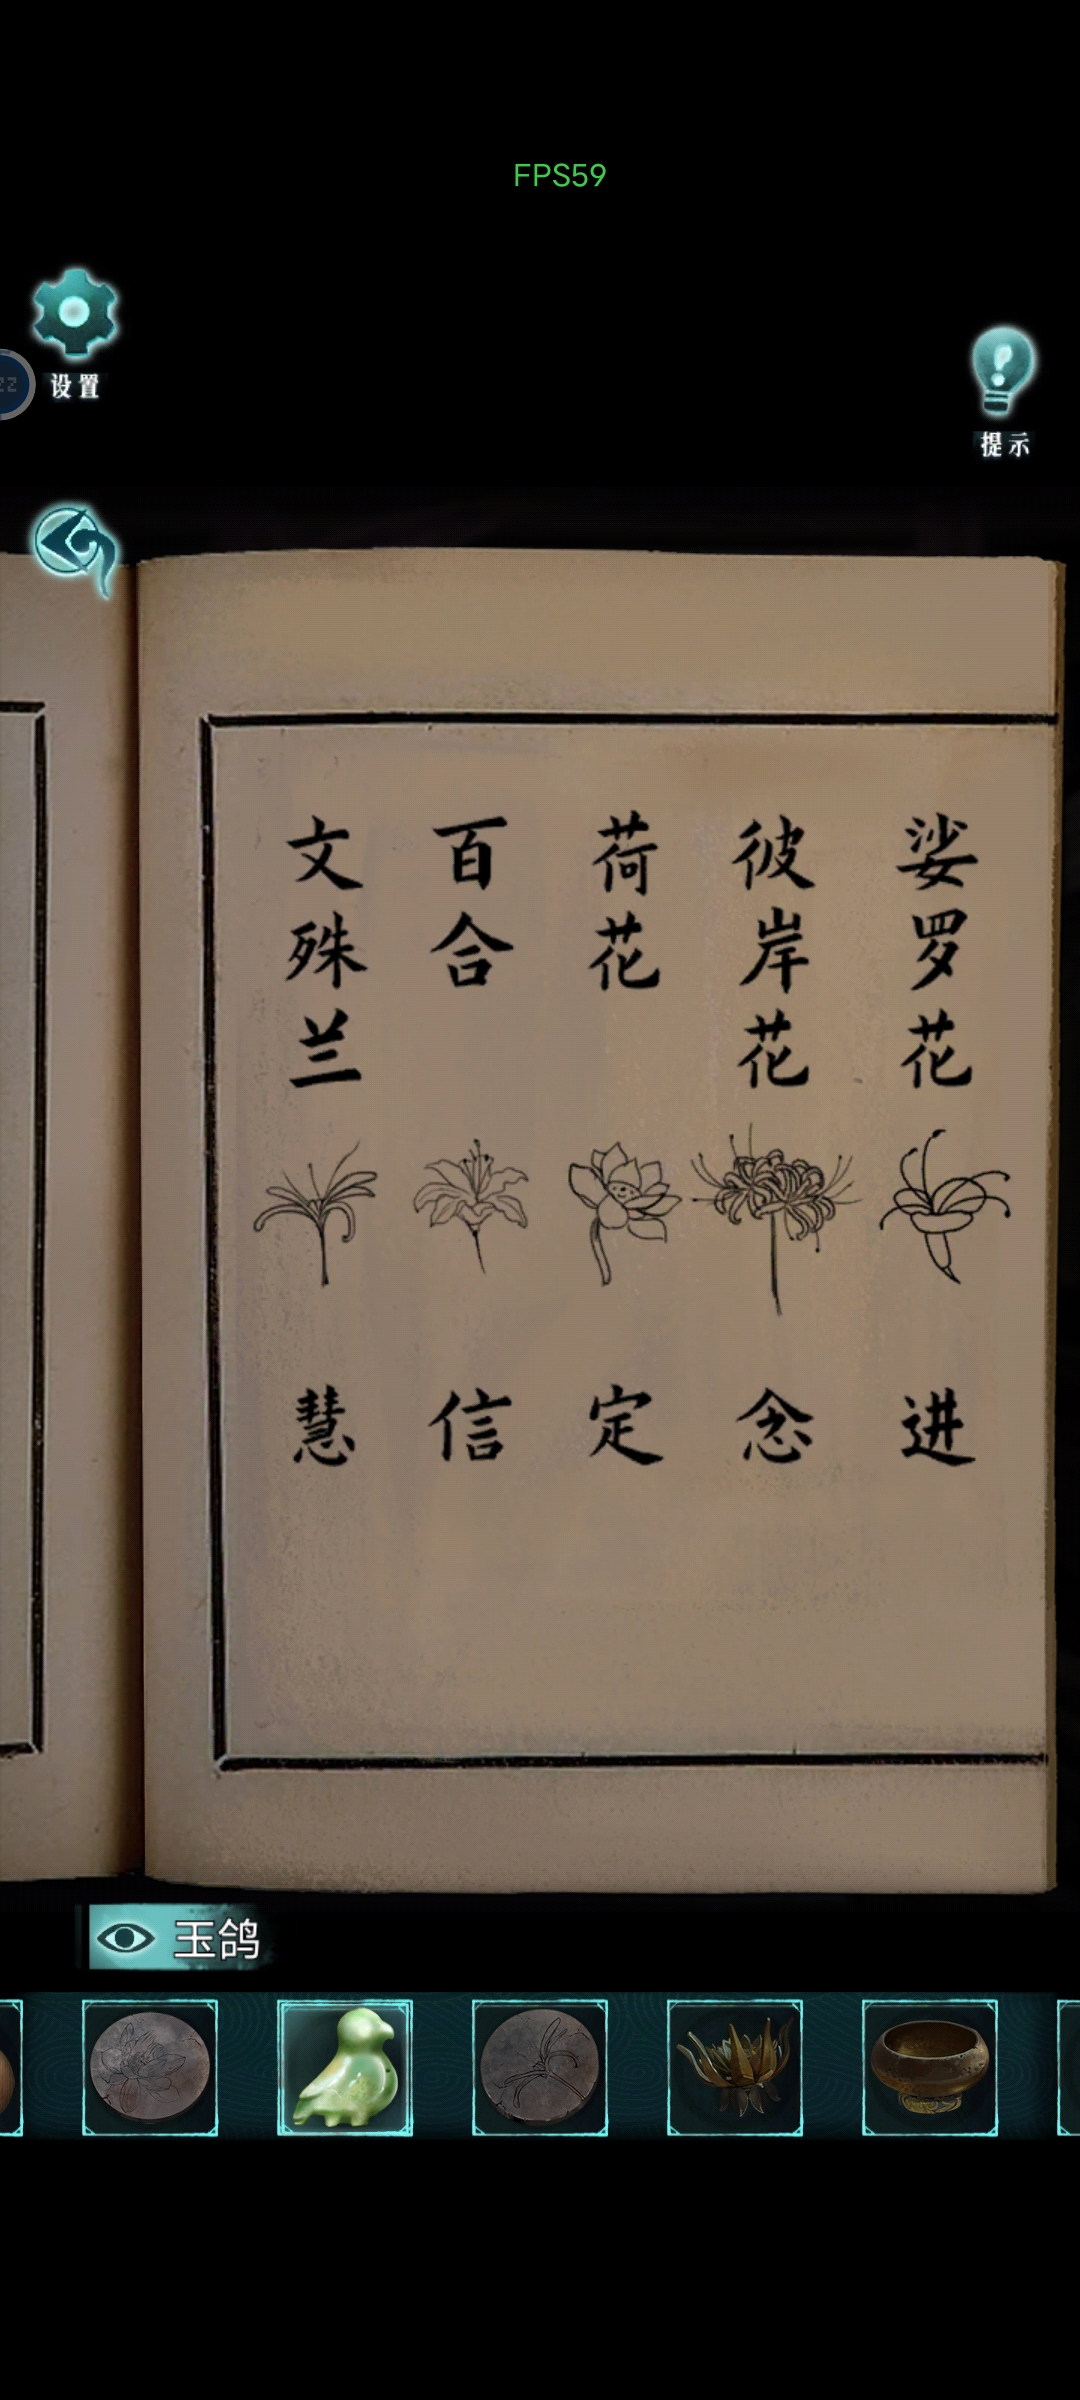 FPS59
设置
提示
文殊兰
百合
荷花
彼岸花
娑罗花
慧
信
定
念
进
玉鸽